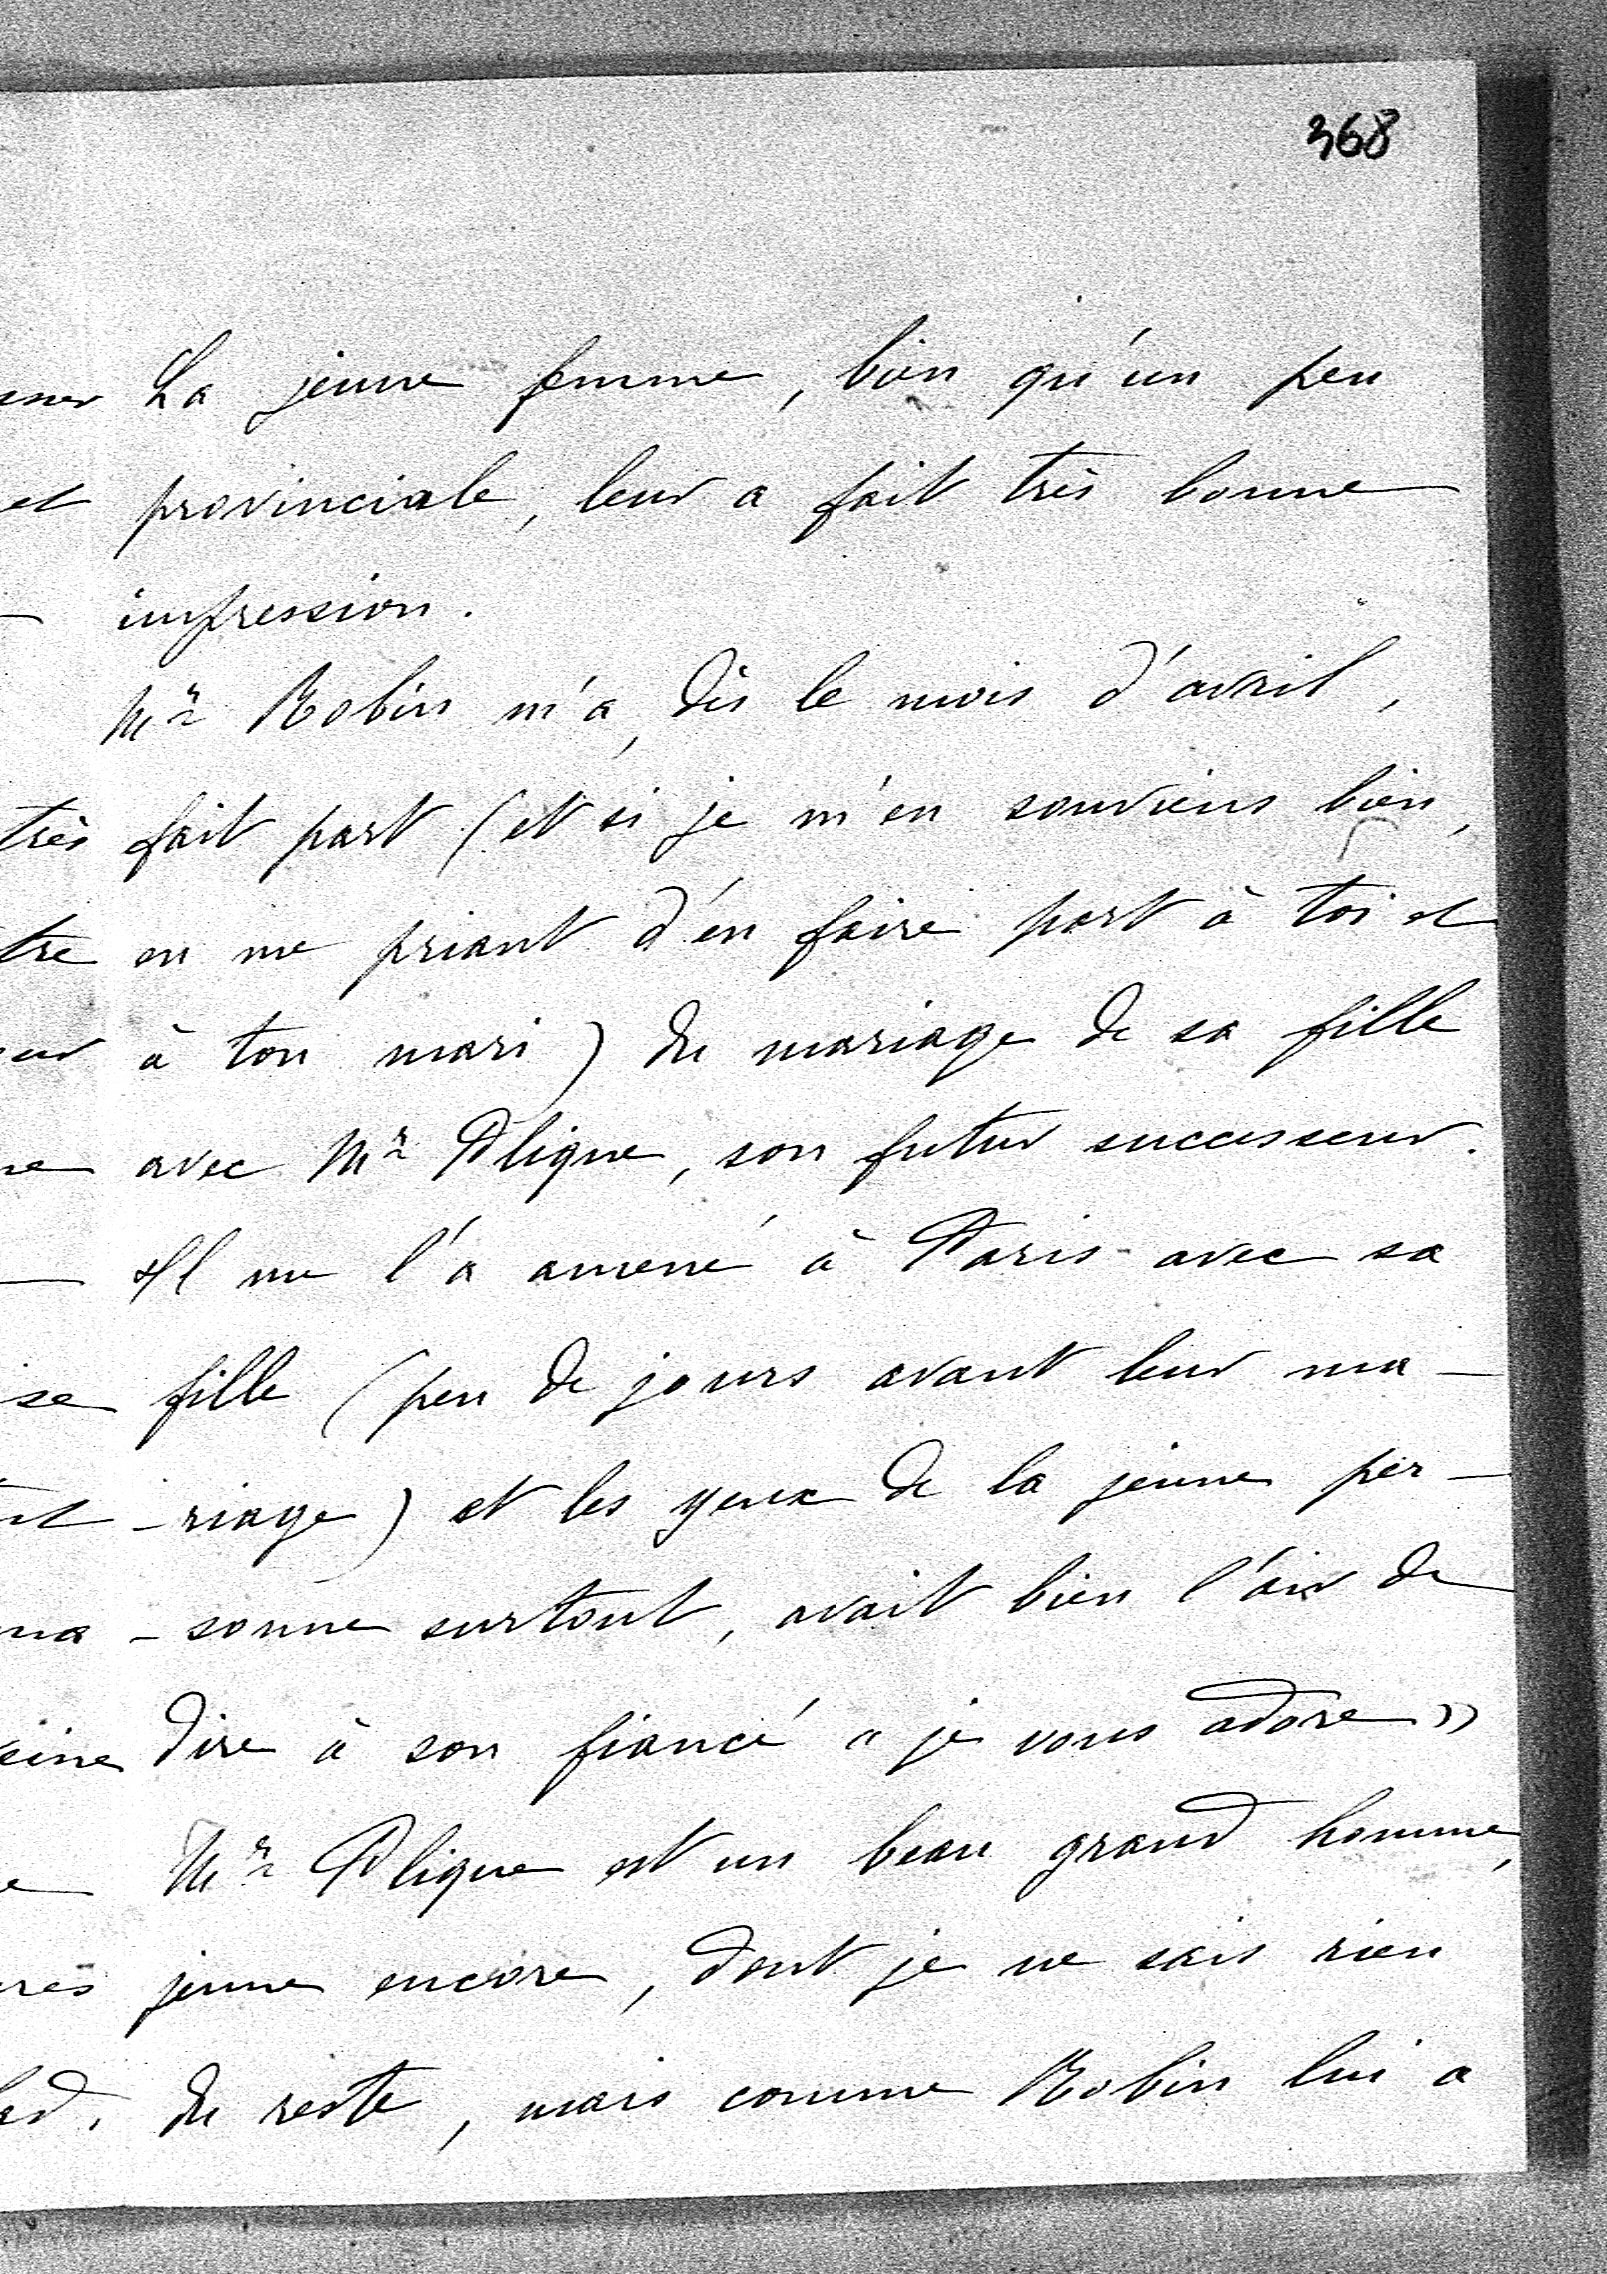 368
La jeune femme, bien qu'un peu
provinciale, leur a fait très bonne
impression.
Mr Robin m'a, dès le mois d'avril,
fait part (et si je m'en souviens bien,
en me priant d'en faire part à toi et
à ton mari) du mariage de sa fille
avec Mr Plique, son futur successeur.
Il me l'a amené à Paris avec sa
fille (peu de jours avant leur ma-
-riage) et les yeux de la jeune per-
-sonne surtout, avait bien l'air de
dire à son fiancé "je vous adore»
Mr Plique est un beau grand homme,
jeune encore, dont je ne sais rien
du reste, mais comme Robin lui a